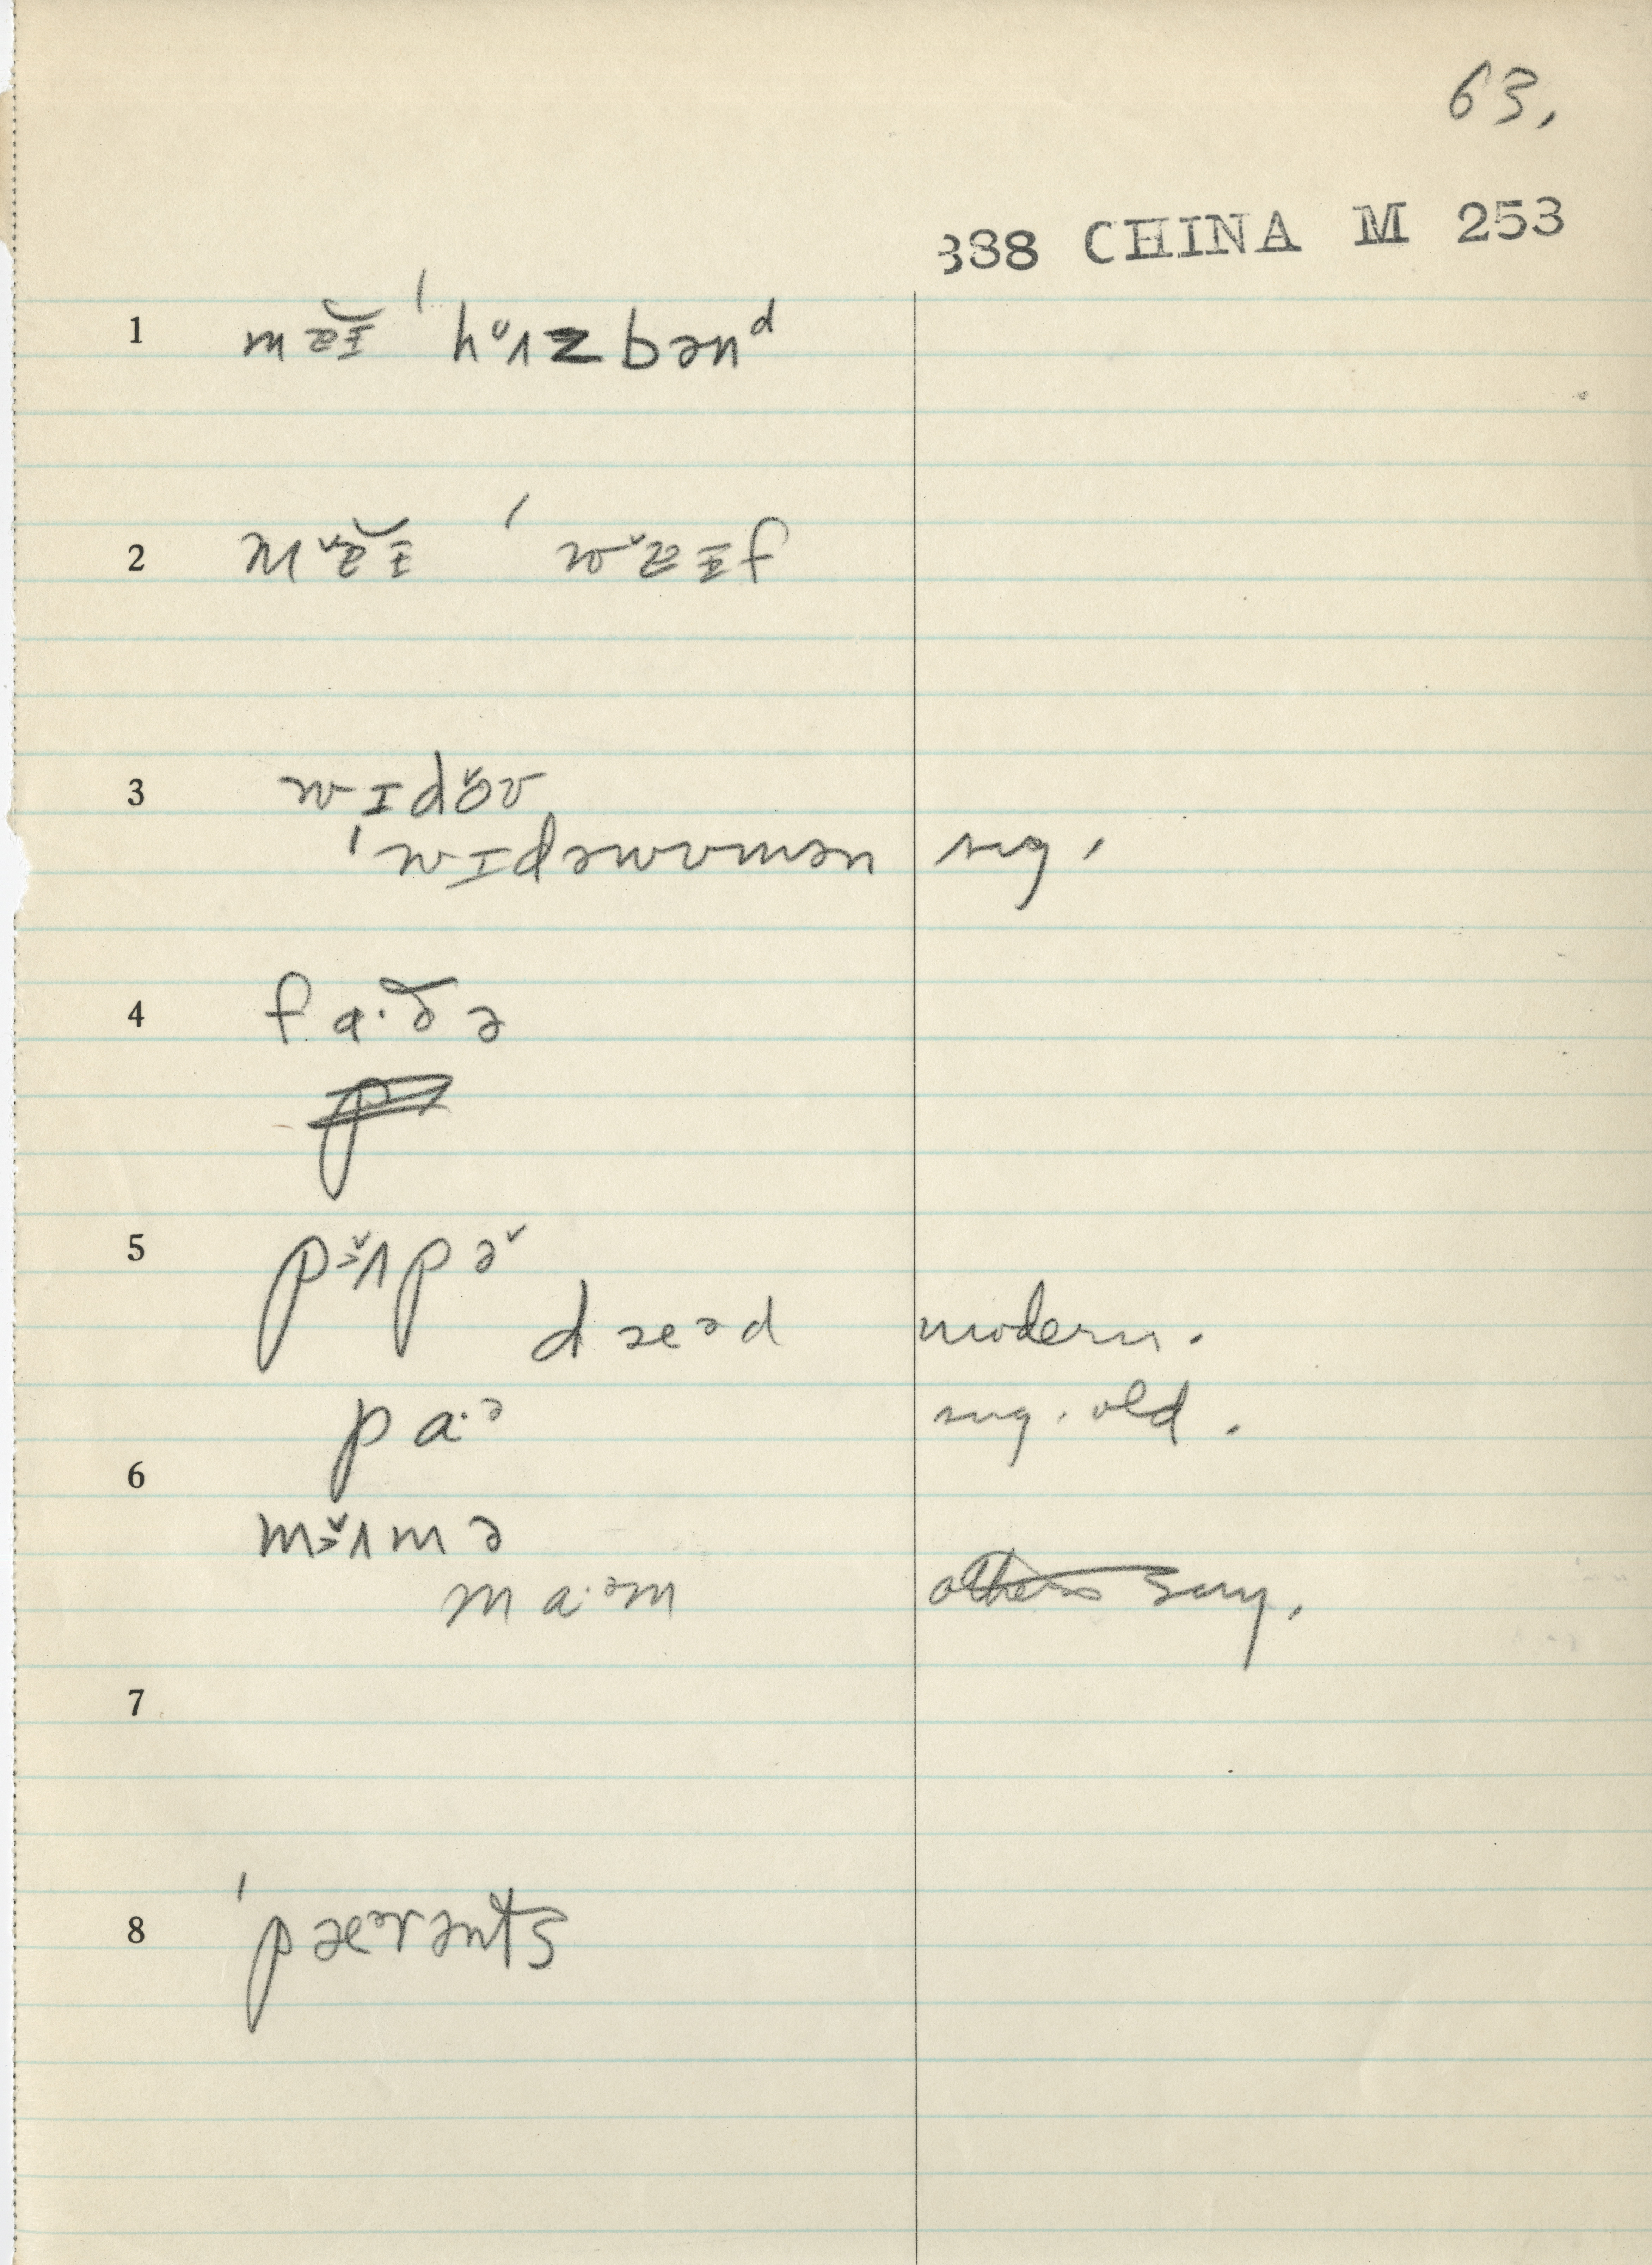 63.
388 CHINA M 253
1 mɐɪ̆ ˈhʌzbənᵈ
2 mɐɪ̆ ˈwɐɪf
3 wɪdoʊ
ˈwɪdəwʊmən sug.
4 fa·ðə
5 pʌpə
dæᵊd modern.
pa·ᵊ sug. old.
6
mʌmə
ma·ᵊm others say.
7
8 ˈpæᵊrənts